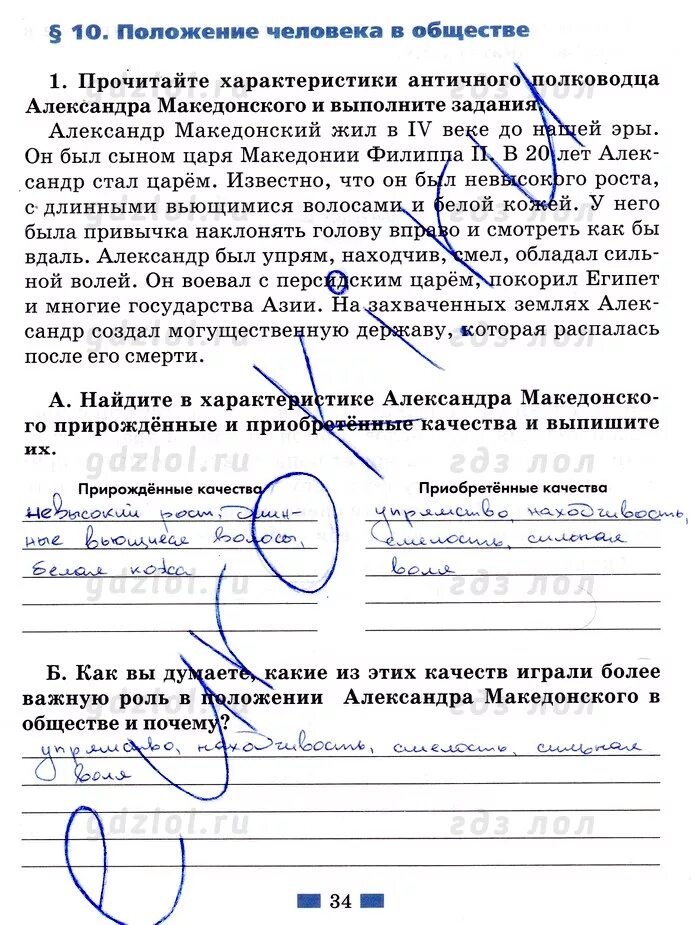 § 10. Положение человека в обществе
1. Прочитайте характеристики античного полководца
Александра Македонского и выполните задания.
Александр Македонский жил в IV веке до нашей эры.
Он был сыном царя Македонии Филиппа II. В 20 лет Алек-
сандр стал царём. Известно, что он был невысокого роста,
с длинными вьющимися волосами и белой кожей. У него
была привычка наклонять голову вправо и смотреть как бы
вдаль. Александр был упрям, находчив, смел, обладал силь-
ной волей. Он воевал с персидским царём, покорил Египет
и многие государства Азии. На захваченных землях Алек-
сандр создал могущественную державу, которая распалась
после его смерти.
А. Найдите в характеристике Александра Македонско-
го прирождённые и приобретённые качества и выпишите
их.
gdzlol.ru гдз лол
Прирождённые качества Приобретённые качества
невысокий рост, длин- упрямство, находчивость,
ные вьющиеся волосы, смелость, сильная
белая кожа воля
Б. Как вы думаете, какие из этих качеств играли более
важную роль в положении Александра Македонского в
обществе и почему?
упрямство, находчивость, смелость, сильная
воля
gdzlol.ru гдз лол
34